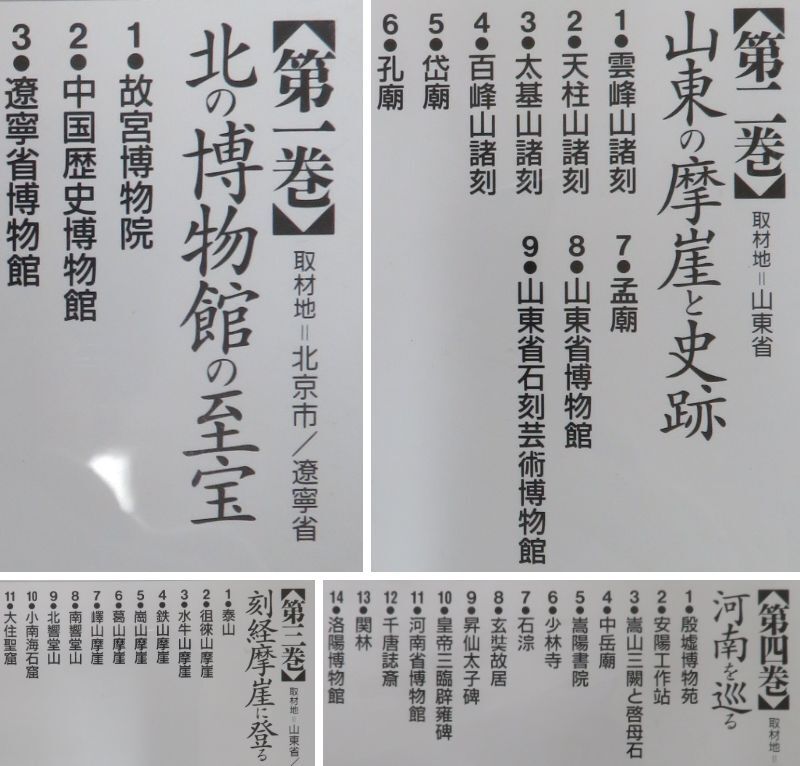 【第一巻】
取材地=北京市/遼寧省
北の博物館の至宝
1●故宮博物院
2●中国歴史博物館
3●遼寧省博物館
【第二巻】
取材地=山東省
山東の摩崖と史跡
1●雲峰山諸刻
2●天柱山諸刻
3●太基山諸刻
4●百峰山諸刻
5●岱廟
6●孔廟
7●孟廟
8●山東省博物館
9●山東省石刻芸術博物館
【第三巻】
取材地=山東省/
刻経摩崖に登る
1●泰山
2●徂徠山摩崖
3●水牛山摩崖
4●鉄山摩崖
5●崗山摩崖
6●葛山摩崖
7●嶧山摩崖
8●南響堂山
9●北響堂山
10●小南海石窟
11●大住聖窟
【第四巻】
取材地=
河南を巡る
1●殷墟博物苑
2●安陽工作站
3●嵩山三闕と啓母石
4●中岳廟
5●嵩陽書院
6●少林寺
7●石淙
8●玄奘故居
9●昇仙太子碑
10●皇帝三臨辟雍碑
11●河南省博物館
12●千唐誌斎
13●関林
14●洛陽博物館